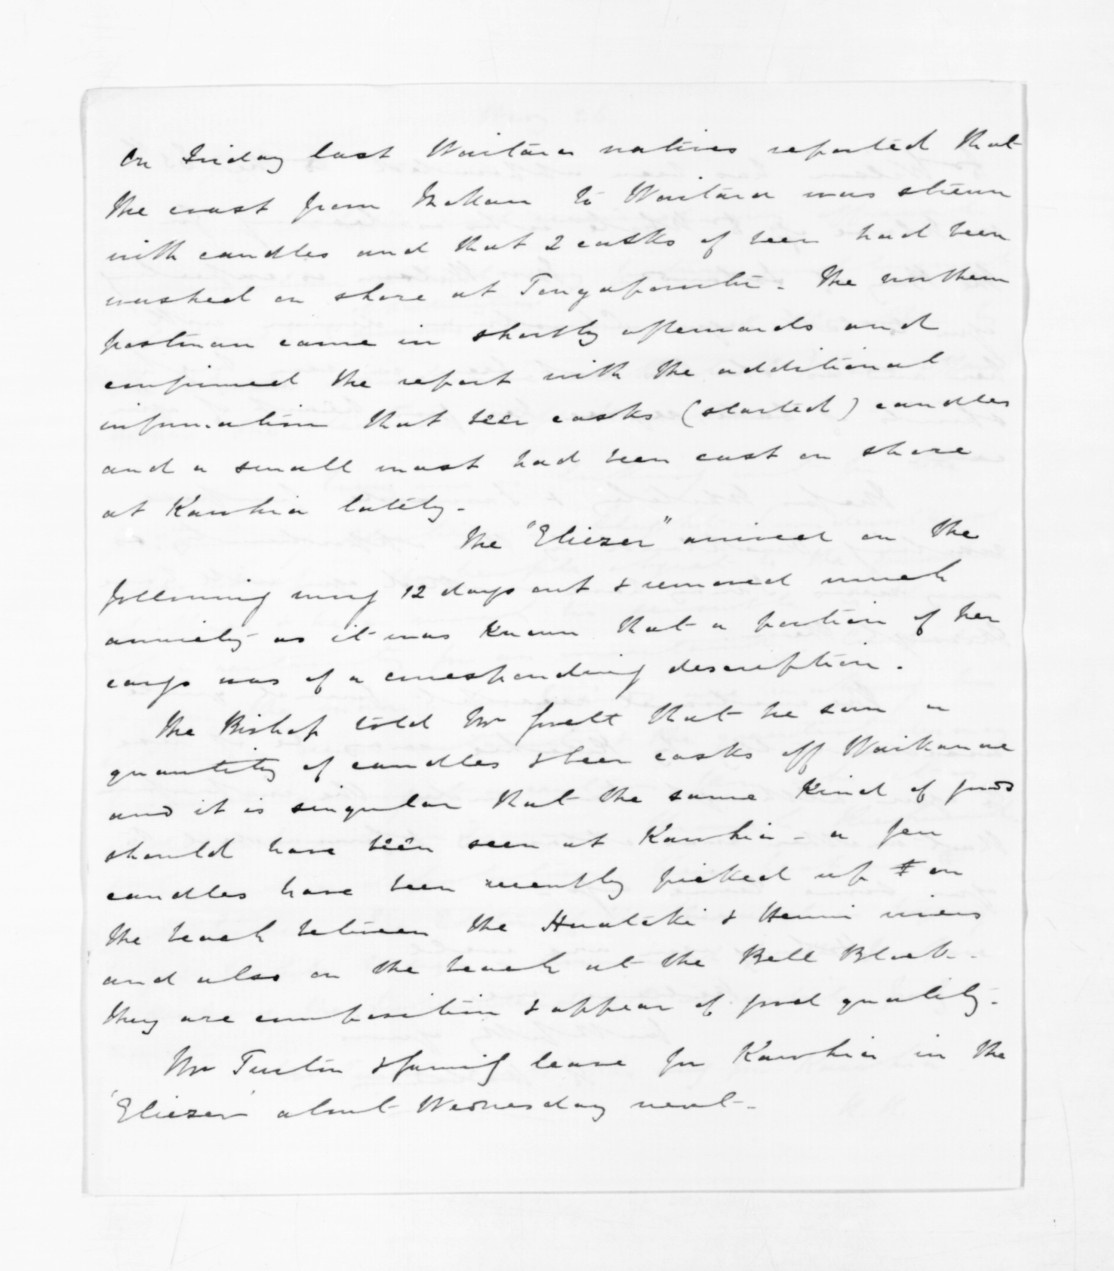 On Friday last Waitara natives reported that
the coast from Mokau to Waitara was strewn
with candles and that 2 casks of beer had been
washed on shore at Tongaporutu - The northern
postman came in shortly afterwards and
confirmed the report with the additional
information that beer casks (started) candles
and a small mast had been cast on shore
at Kawhia lately -
The "Eliezer" arrived on the
following mng 12 days out & removed much
anxiety - as it was known that a portion of her
cargo was of a corresponding description .
The Bishop told Mr that he saw a
quantity of candles & beer casks off Waikanae
and it is singular that the same kind of goods
should have been seen at Kawhia - a few
candles have been recently picked up on
the beach between the Huatoki & Henui rivers
and also on the beach at the Bell Block -
they are composition & appear of good quality -
Mr Turton & family leave for Kawhia in the
'Eliezer' about Wednesday next -